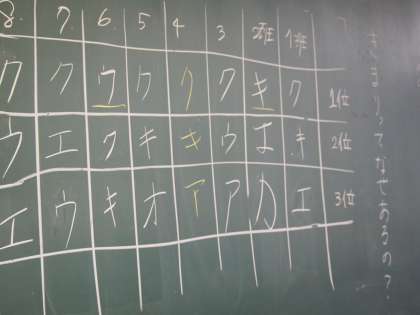 きまりってなぜあるの?
8. 7. 6. 5 4 3 2班 1班
ク ク ウ ク ク ク キ ク 1位
ウ エ ク キ キ ウ エ キ 2位
エ ウ キ オ ア ア カ エ 3位